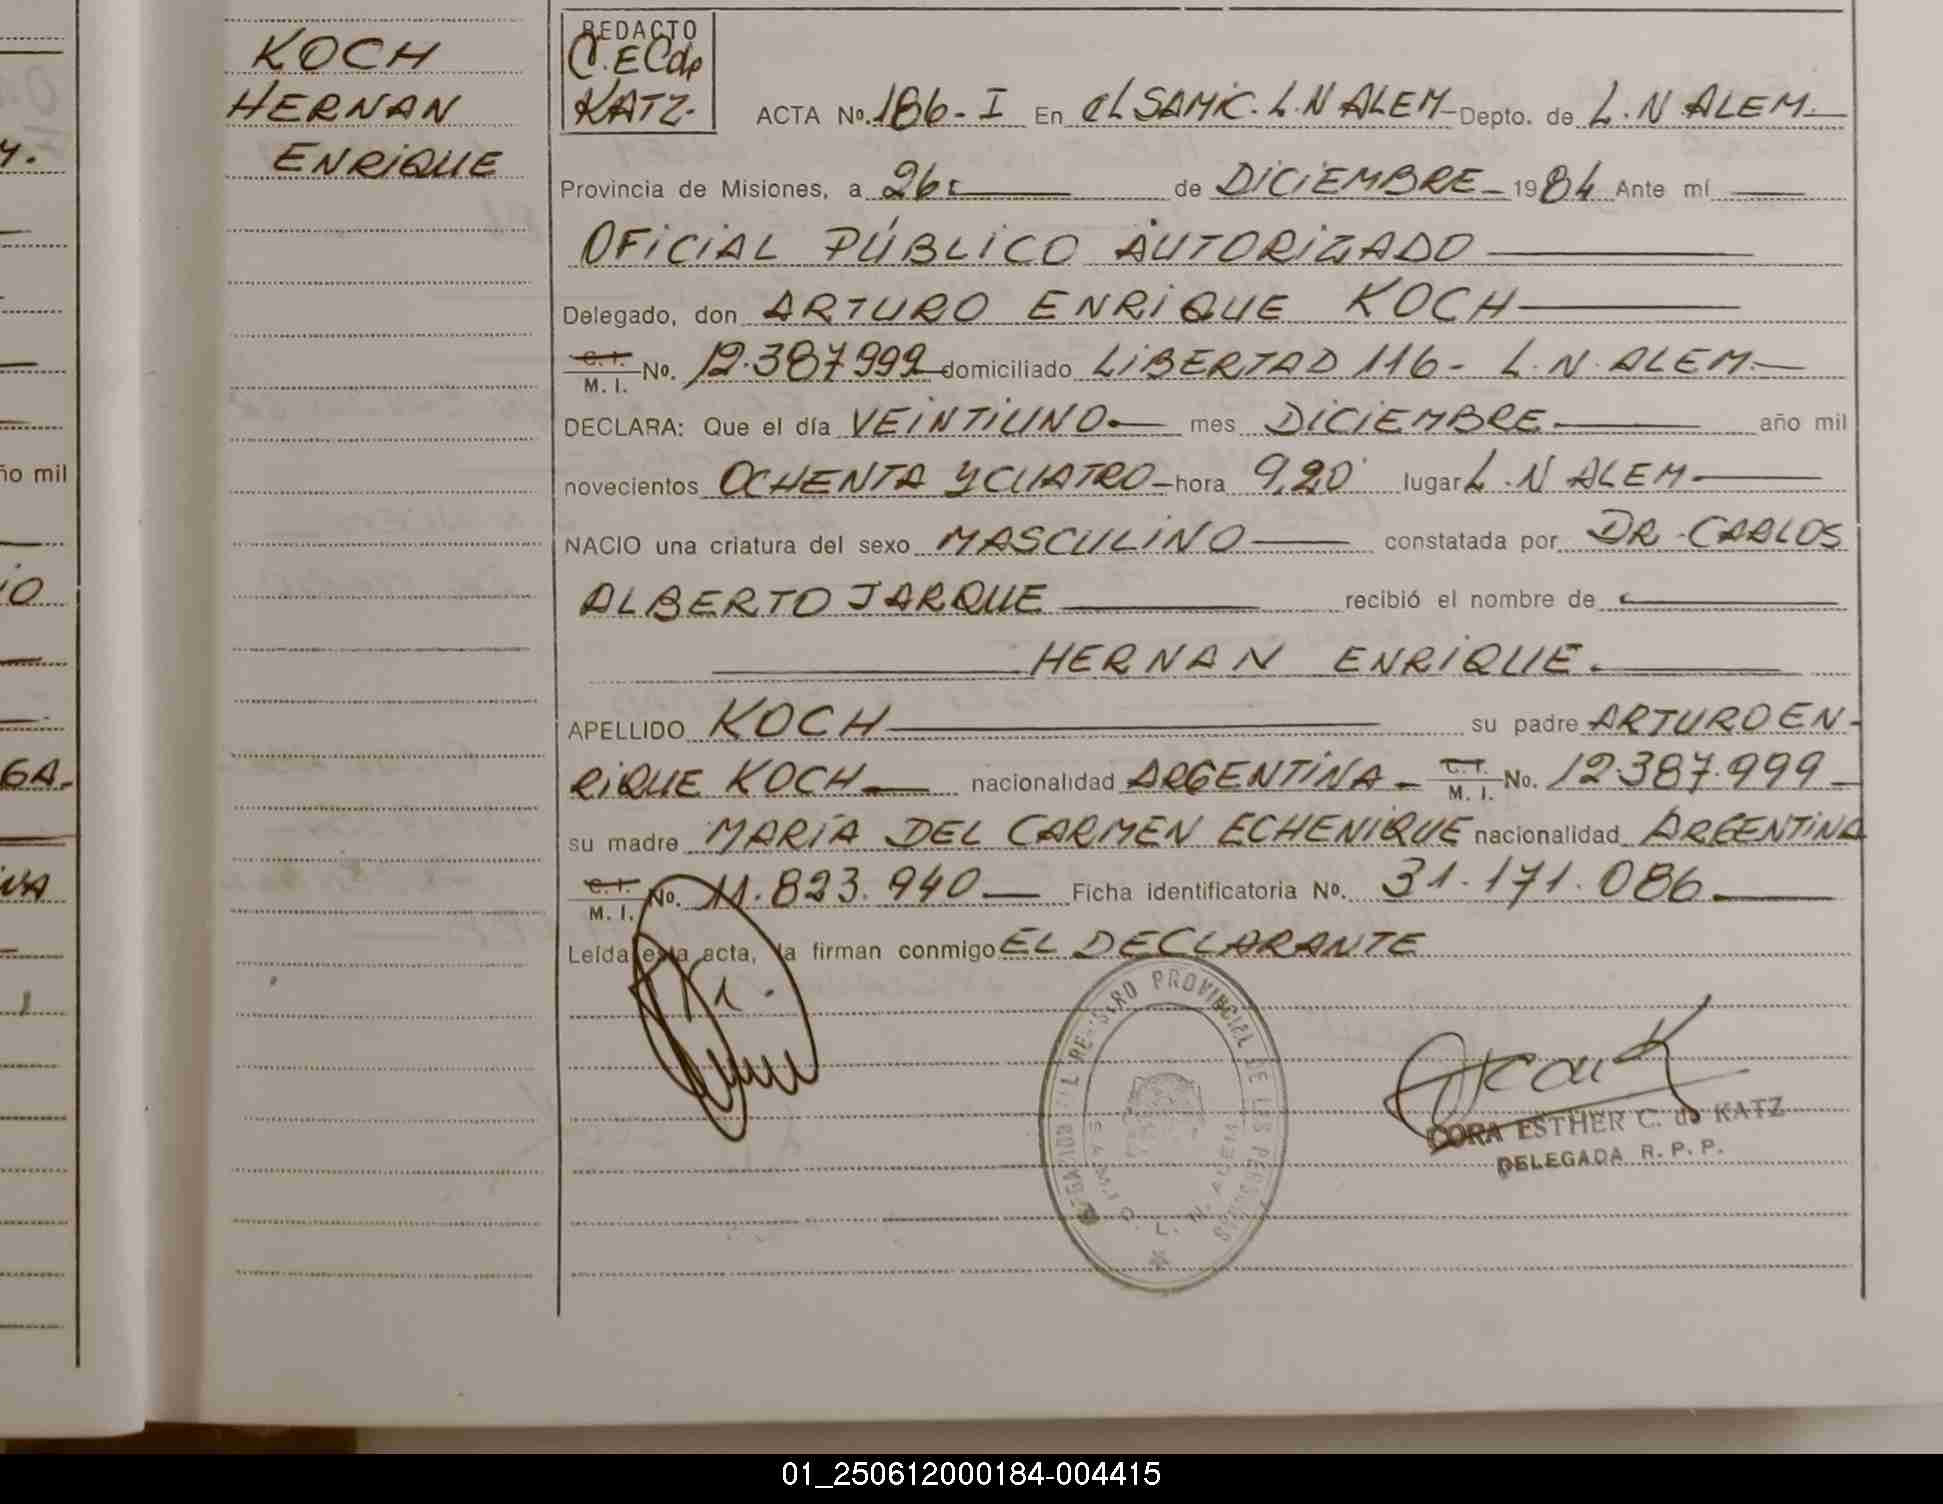 KOCH
HERNAN
ENRIQUE
REDACTO
C.E.C de
KATZ.-
ACTA Nº. 186-I En el SAMIC. L.N ALEM- Depto. de L.N ALEM.-
Provincia de Misiones, a 26 de DICIEMBRE - 1984 Ante mí
OFICIAL PÚBLICO AUTORIZADO
Delegado, don ARTURO ENRIQUE KOCH
C. I.
M. I. No. 12.387.999 domiciliado LIBERTAD 116 - L.N. ALEM.-
DECLARA: Que el día VEINTIUNO.- mes DICIEMBRE.- año mil
novecientos OCHENTA Y CUATRO - hora 9,20 lugar L.N ALEM.-
NACIO una criatura del sexo MASCULINO constatada por DR. CARLOS
ALBERTO JARQUE recibió el nombre de
HERNAN ENRIQUE.
APELLIDO KOCH su padre ARTURO EN-
RIQUE KOCH nacionalidad ARGENTINA - C. I. M. I. No. 12.387.999 -
su madre MARÍA DEL CARMEN ECHENIQUE nacionalidad ARGENTINA
C. I.
M. I. No. 11.823.940 - Ficha identificatoria Nº. 31.171.086.-
Leída esta acta, la firman conmigo EL DECLARANTE
REGISTRO PROVINCIAL DE LAS PERSONAS
L. N. ALEM
CORA ESTHER C. de KATZ
DELEGADA R. P. P.
ño mil
IO
GA.
NA
01_250612000184-004415